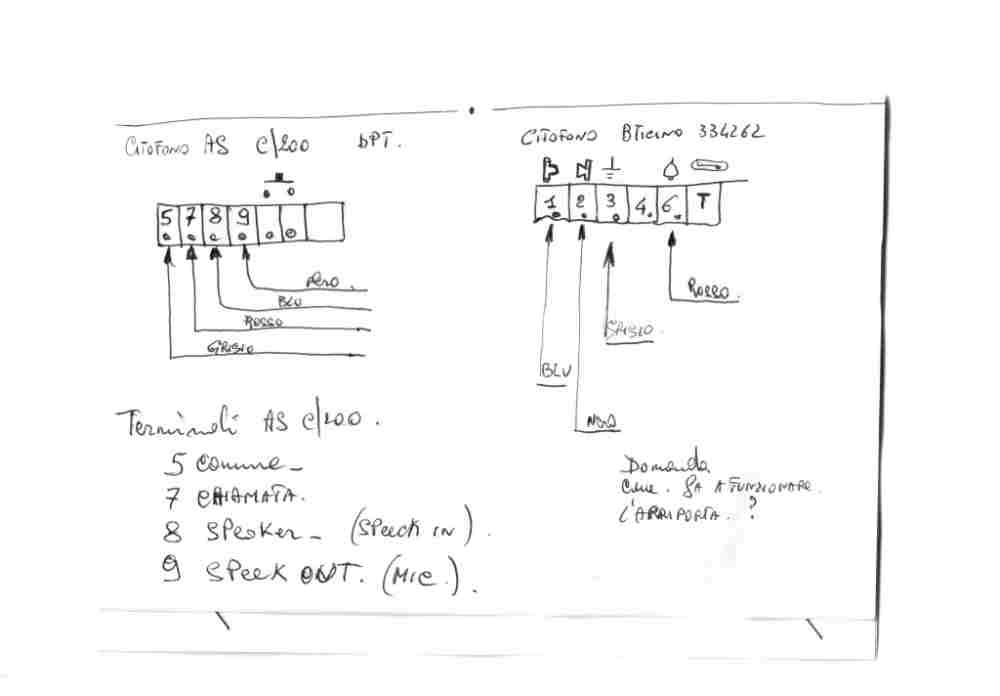 CITOFONO AS C/200 bPT.
5 7 8 9
NERO.
BLU
ROSSO
GRIGIO
Terminali AS C/200.
5 Comune -
7 CHIAMATA.
8 SPeaker - (SPeeck IN).
9 SPeek OUT. (MIC.).
CITOFONO BTICINO 334262
1 2 3 4. 6. T
ROSSO.
GRIGIO.
BLU
NERO
Domanda
Come. FA A FUNZIONARE.
L'APRIPORTA. ?